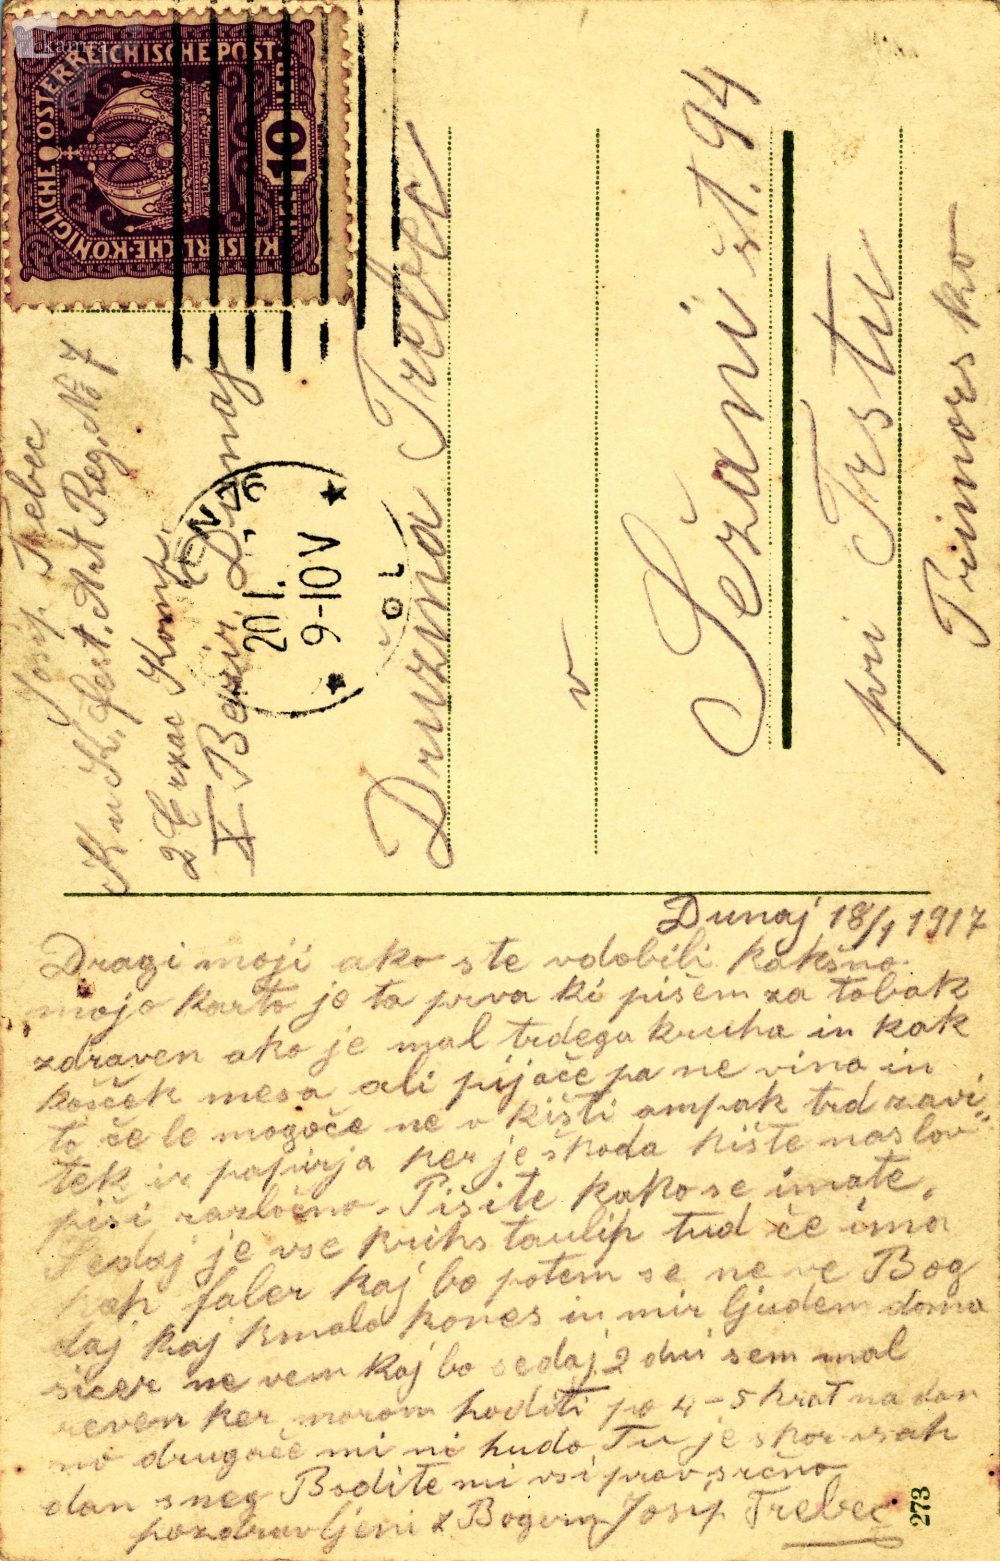 kamra
KAISERLICHE KÖNIGLICHE ÖSTERREICHISCHE POST
10
Josip Trebec
K u K. fest. Art Reg. No 7
2 Erzac Komp.
X Bezir Dunaj
WIEN 76
20 I.
9-10 V
Družina Trebec
v
Sežani št. 94
pri Trstu
Primorsko
Dunaj 18/1 1917
Dragi moji ako ste vdobili kakšno
mojo karto je ta prva ki pišem za tobak
zdraven ako je mal trdega kruha in kak
košček mesa ali pijače pa ne vina in
to če le mogoče ne v kišti ampak trd zavi-
tek iz papirja ker je škoda kište naslov
piši razločno. Pišite kako se imate.
Sedaj je vse krihs taulih tud če ima
kak faler kaj bo potem se ne ve Bog
daj kaj kmalo kones in mir ljudem doma
sicer ne vem kaj bo sedaj 2 dni sem mal
reven ker moram hoditi po 4-5 krat na dan
no drugače mi ni hudo Tu je skor vsak
dan sneg Bodite mi vsi prav srčno
pozdravljeni z Bogom Josip Trebec
273